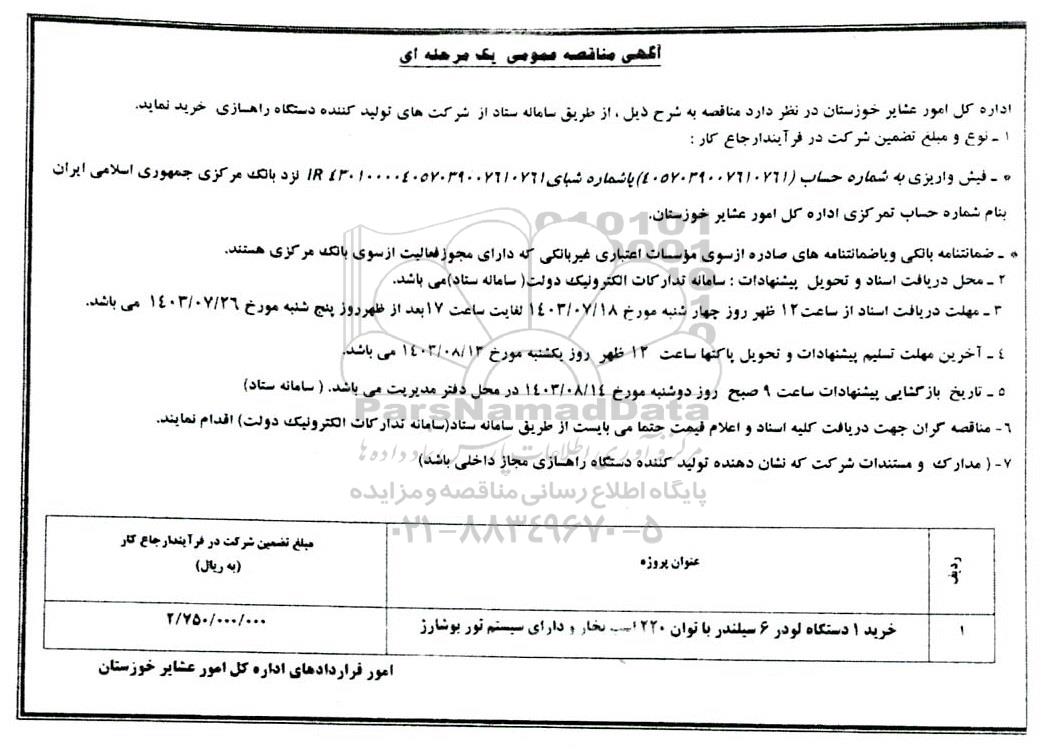 آگهی مناقصه عمومی یک مرحله ای
اداره کل امور عشایر خوزستان در نظر دارد مناقصه به شرح ذیل ، از طریق سامانه ستاد از شرکت های تولید کننده دستگاه راهسازی خرید نماید.
۱ ـ نوع و مبلغ تضمین شرکت در فرآیندارجاع کار :
* ـ فیش واریزی به شماره حساب (۴۰۵۷۰۳۹۰۰۷۶۱۰۷۶۱) باشماره شبای IR ۴۳۰۱۰۰۰۰۴۰۵۷۰۳۹۰۰۷۶۱۰۷۶۱ نزد بانک مرکزی جمهوری اسلامی ایران
بنام شماره حساب تمرکزی اداره کل امور عشایر خوزستان.
* ـ ضمانتنامه بانکی ویاضمانتنامه های صادره ازسوی مؤسسات اعتباری غیربانکی که دارای مجوزفعالیت ازسوی بانک مرکزی هستند.
۲ ـ محل دریافت اسناد و تحویل پیشنهادات : سامانه تدارکات الکترونیک دولت( سامانه ستاد)می باشد.
۳ ـ مهلت دریافت اسناد از ساعت۱۲ ظهر روز چهار شنبه مورخ ۱۴۰۳/۰۷/۱۸ لغایت ساعت ۱۷بعد از ظهرروز پنج شنبه مورخ ۱۴۰۳/۰۷/۲۶ می باشد.
۴ ـ آخرین مهلت تسلیم پیشنهادات و تحویل پاکتها ساعت ۱۲ ظهر روز یکشنبه مورخ ۱۴۰۳/۰۸/۱۳ می باشد.
۵ ـ تاریخ بازگشایی پیشنهادات ساعت ۹ صبح روز دوشنبه مورخ ۱۴۰۳/۰۸/۱۴ در محل دفتر مدیریت می باشد. ( سامانه ستاد)
ParsNamadData
۶- مناقصه گران جهت دریافت کلیه اسناد و اعلام قیمت حتما می بایست از طریق سامانه ستاد(سامانه تدارکات الکترونیک دولت) اقدام نمایند.
۷- ( مدارک و مستندات شرکت که نشان دهنده تولید کننده دستگاه راهسازی مجاز داخلی باشد)
پایگاه اطلاع رسانی مناقصه و مزایده
۰۲۱-۸۸۳۴۹۶۷۰-۵
ردیف عنوان پروژه مبلغ تضمین شرکت در فرآیندارجاع کار
(به ریال)
۱ خرید ۱ دستگاه لودر ۶ سیلندر با توان ۲۲۰ اسب بخار و دارای سیستم تور بوشارژ ۲/۷۵۰/۰۰۰/۰۰۰
امور قراردادهای اداره کل امور عشایر خوزستان